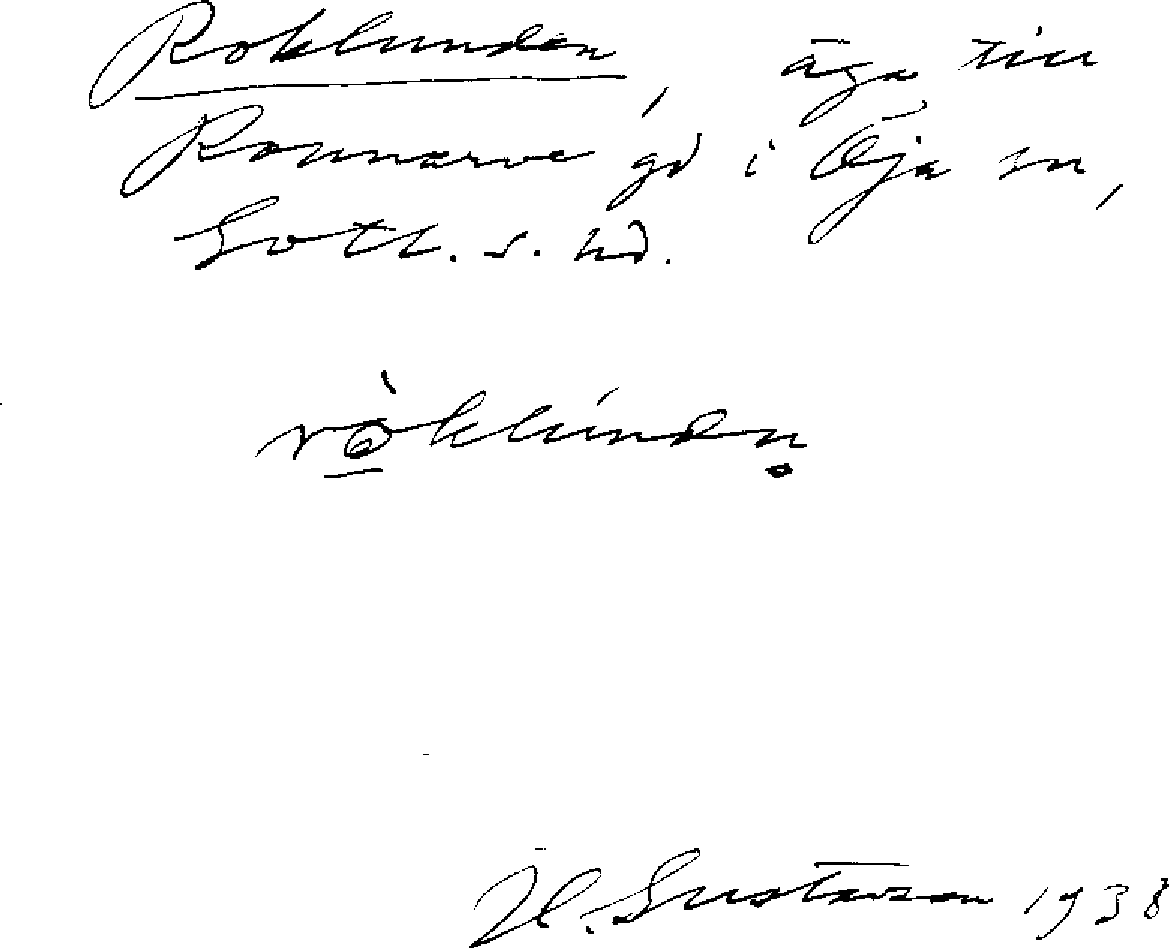 Roklunden, äga till
Ronnarve gd i Öja sn,
Gotl. s. hd.
ròklúndṇ
H. Gustavson 1938